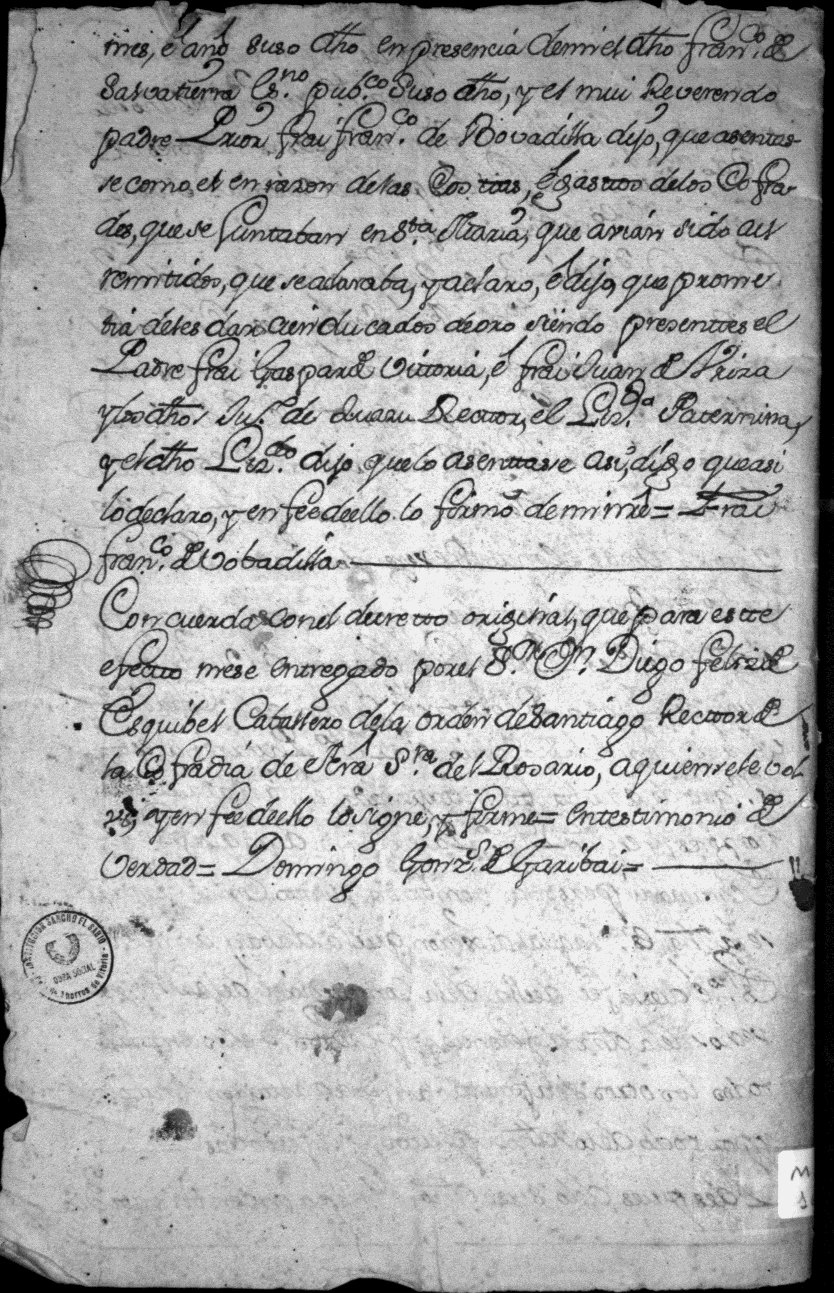 mes, é año suso dho en presencia demi el dho fran.co de
Salvatierra Es.no pub.co suso dho, y el mui Reverendo
padre Prior frai fran.co de Bovadilla dijo, que asentas-
se como, el en razon de las Costtas, é gasttos de los Cofra-
des, que se Juntaban en S.ta Maria, que avian sido a el
remitidos, que se aclaraba, y aclaro, é dijo, que prome
tia de les dar cien ducados de oro siendo presenttes el
Padre frai Gaspar de Vittoria, é frai Juan de Ariza
y los dhos Ju.o de Rector, é el Liz.do Paternina,
y el dho Liz.do dijo que lo asenttase asi, digo que asi
lo declaro, y en fee de ello lo firmo de mi nre = Frai
fran.co de Vobadilla
Concuerda con el decretto original, que para estte
efectto me se entregado por el S.r D.n Diego feliz de
Esquibel Caballero de la orden de Santiago Recttor de
la Cofradia de Nra S.ra del Rosario, a quien se le vol
vi, y en fee de ello lo signe, y firme = En testimonio de
Verdad = Domingo Gonz.s de Garibai =
INSTITUCION SANCHO EL SABIO
OBRA SOCIAL
Ahorros de Vitoria
M
1